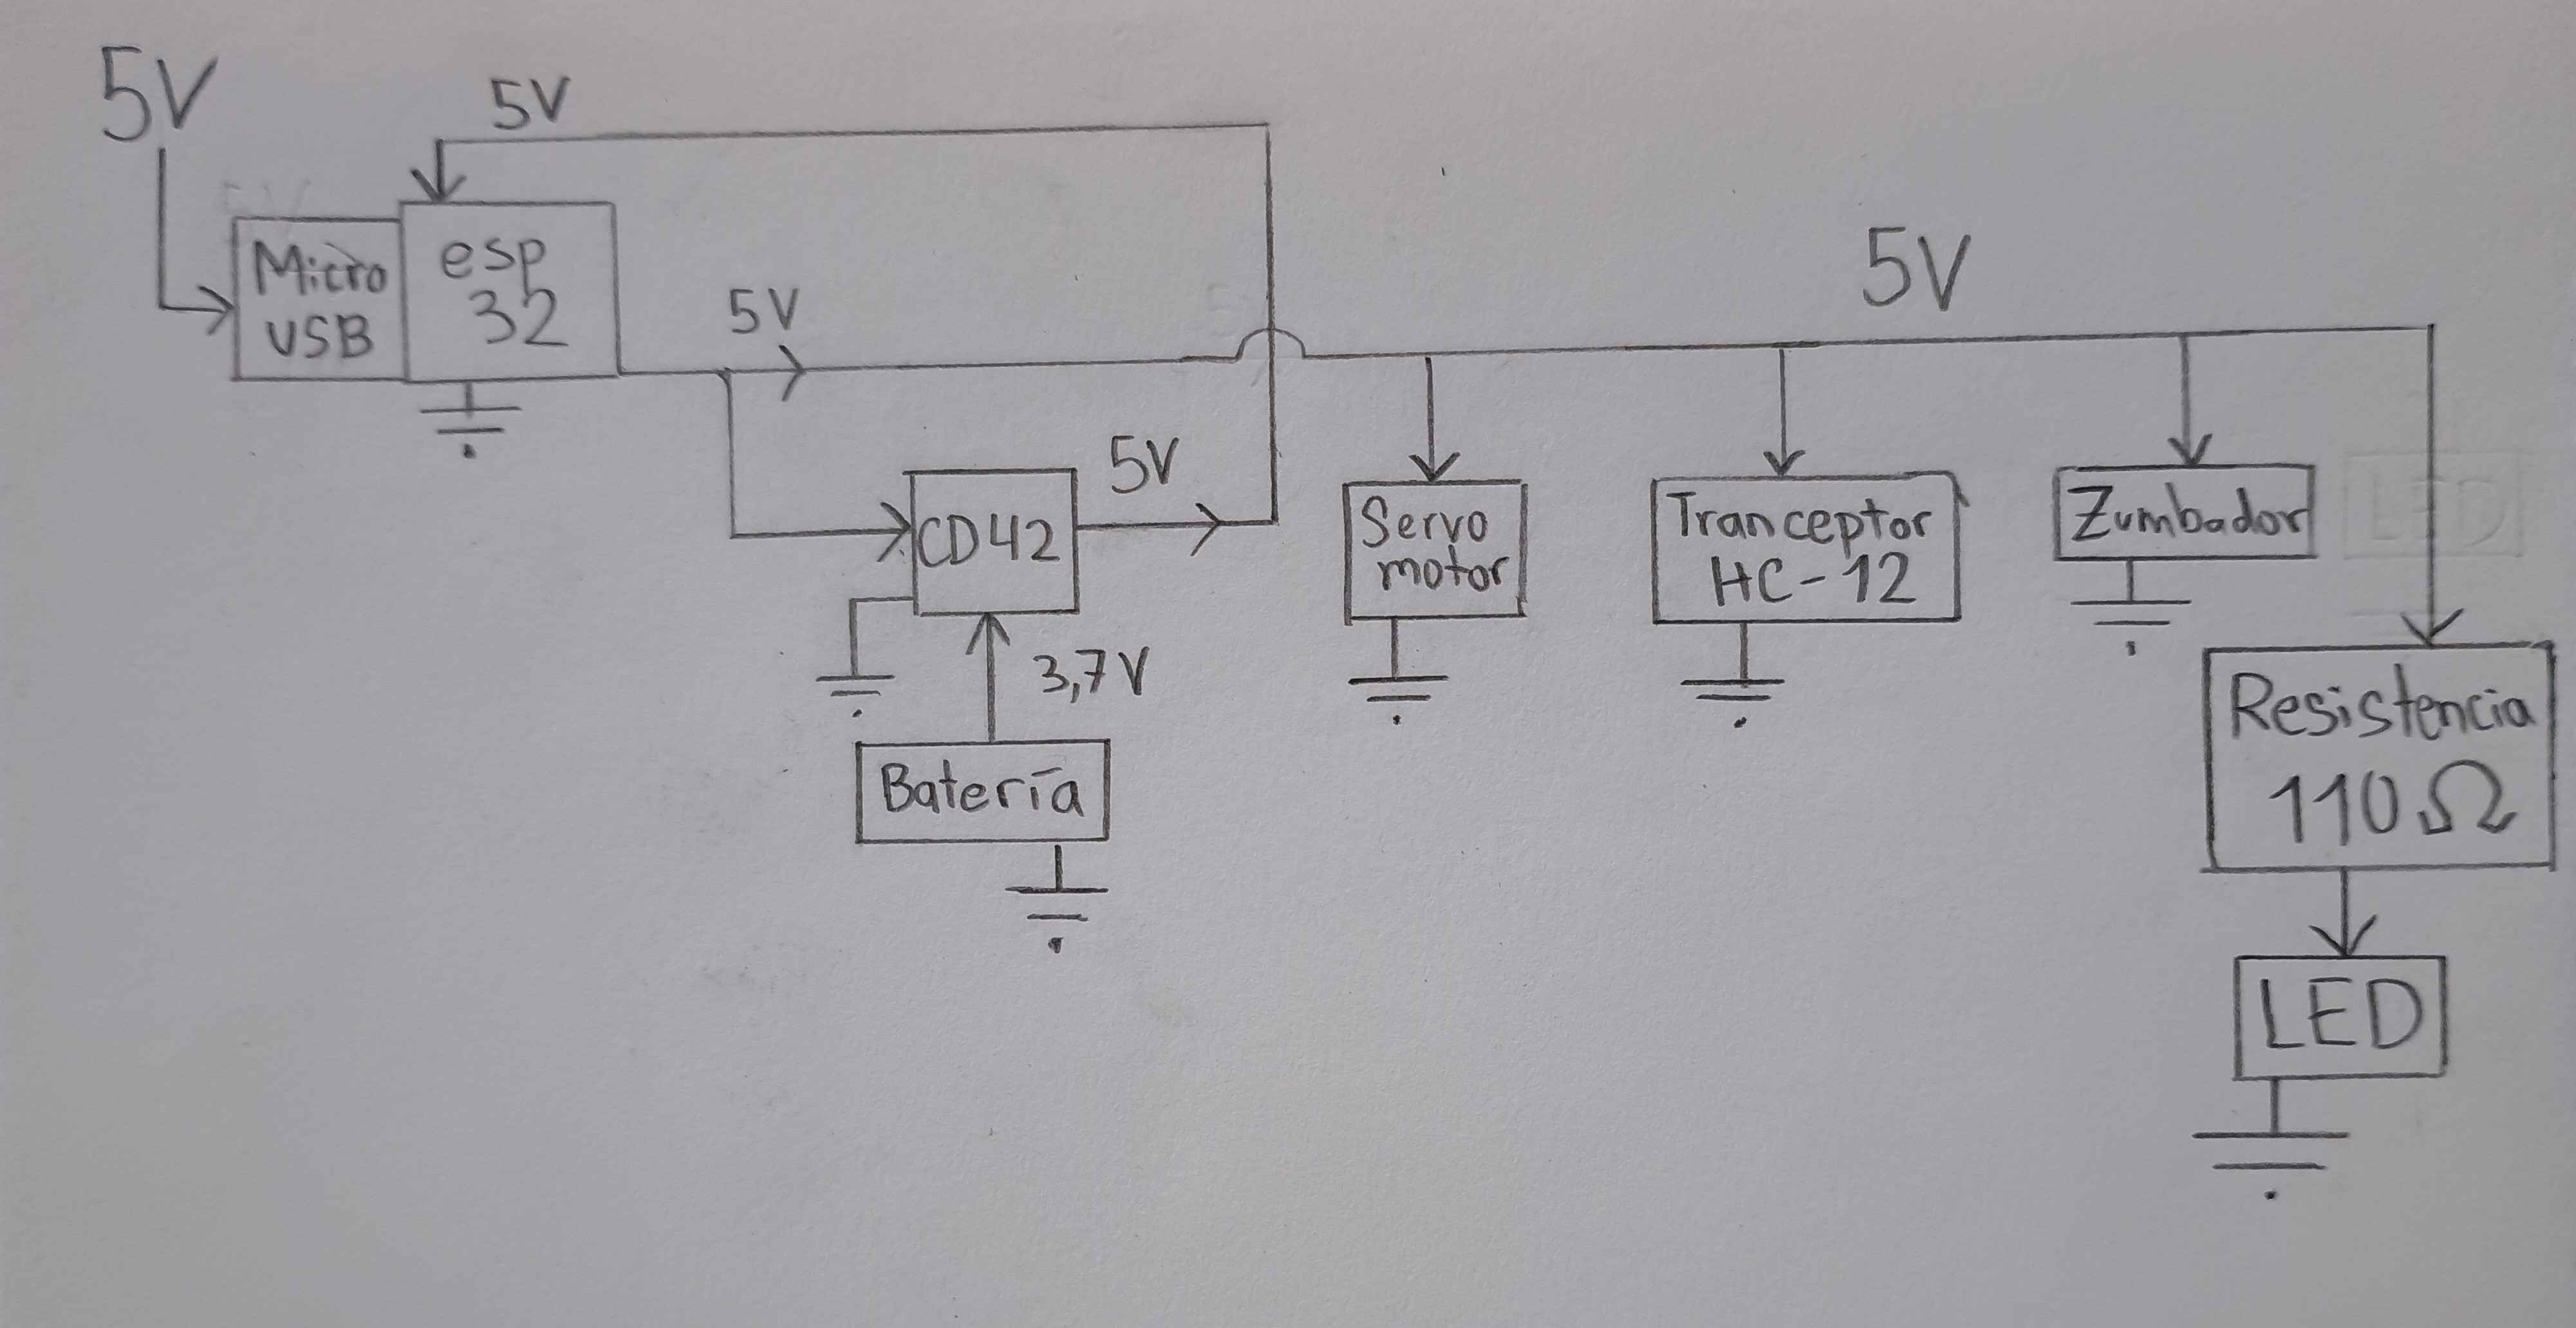 5V
5V
Micro
USB
esp
32
5V
5V
CD42
5V
3,7V
Batería
Servo
motor
Tranceptor
HC-12
Zumbador
Resistencia
110Ω
LED